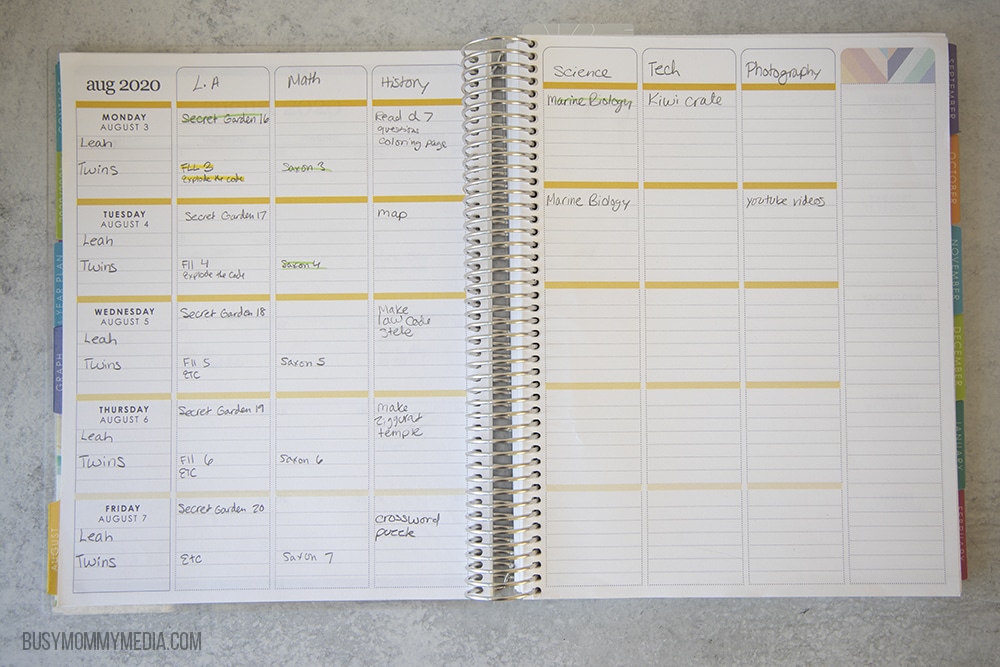 aug 2020
L.A
Math
History
Science
Tech
Photography
MONDAY
AUGUST 3
Leah
Secret Garden 16
Read d 7
questions
coloring page
Marine Biology
Kiwi Crate
Twins
FLL 3
Explode the code
Saxon 3
TUESDAY
AUGUST 4
Leah
Secret Garden 17
map
Marine Biology
youtube videos
Twins
Fll 4
Explode the Code
Saxon 4
WEDNESDAY
AUGUST 5
Leah
Secret Garden 18
Make
law Code
Stele
Twins
Fll 5
ETC
Saxon 5
THURSDAY
AUGUST 6
Leah
Secret Garden 19
Make
Ziggurat
temple
Twins
Fll 6
ETC
Saxon 6
FRIDAY
AUGUST 7
Leah
Secret Garden 20
crossword
puzzle
Twins
Etc
Saxon 7
YEAR PLAN
GRAPH
AUGUST
SEPTEMBER
OCTOBER
NOVEMBER
DECEMBER
JANUARY
FEBRUARY
BUSYMOMMYMEDIA.COM